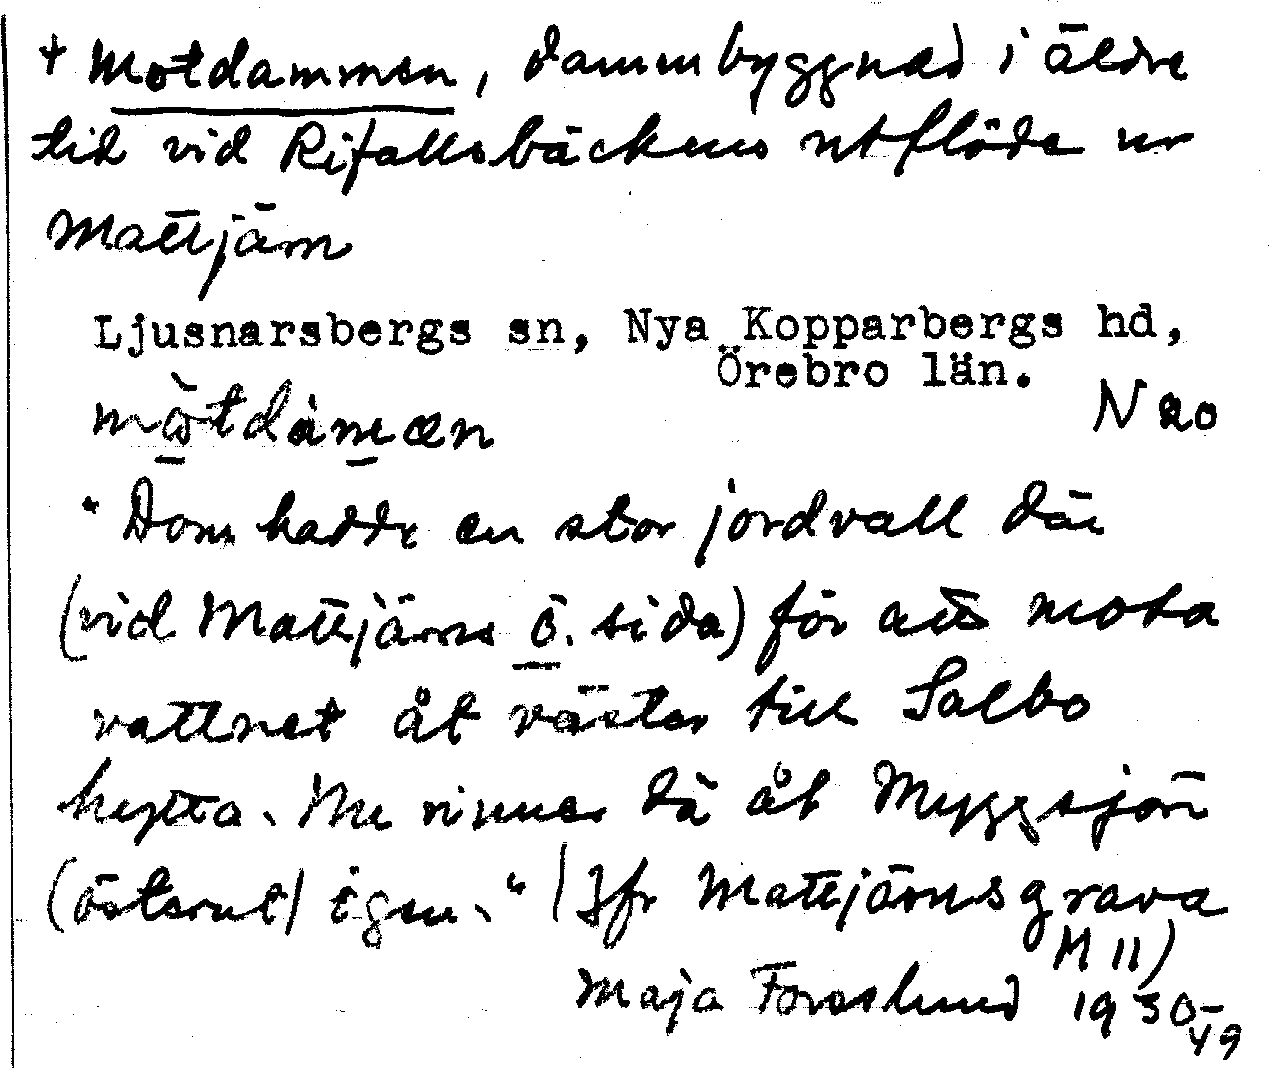 † Motdammen, dammbyggnad i äldre
tid vid Rifallsbäckens utflöde ur
Mattjärn
Ljusnarsbergs sn, Nya Kopparbergs hd,
Örebro län.
N 20
"Dom hadde en stor jordvall där
(vid Mattjärns ö. sida) för att mota
vattnet åt väster till Salbo
hytta. Nu rinner dä åt Myggsjön
(österut) igen." (Jfr Mattjärnsgrava
M 11)
Maja Forsslund 1930-49